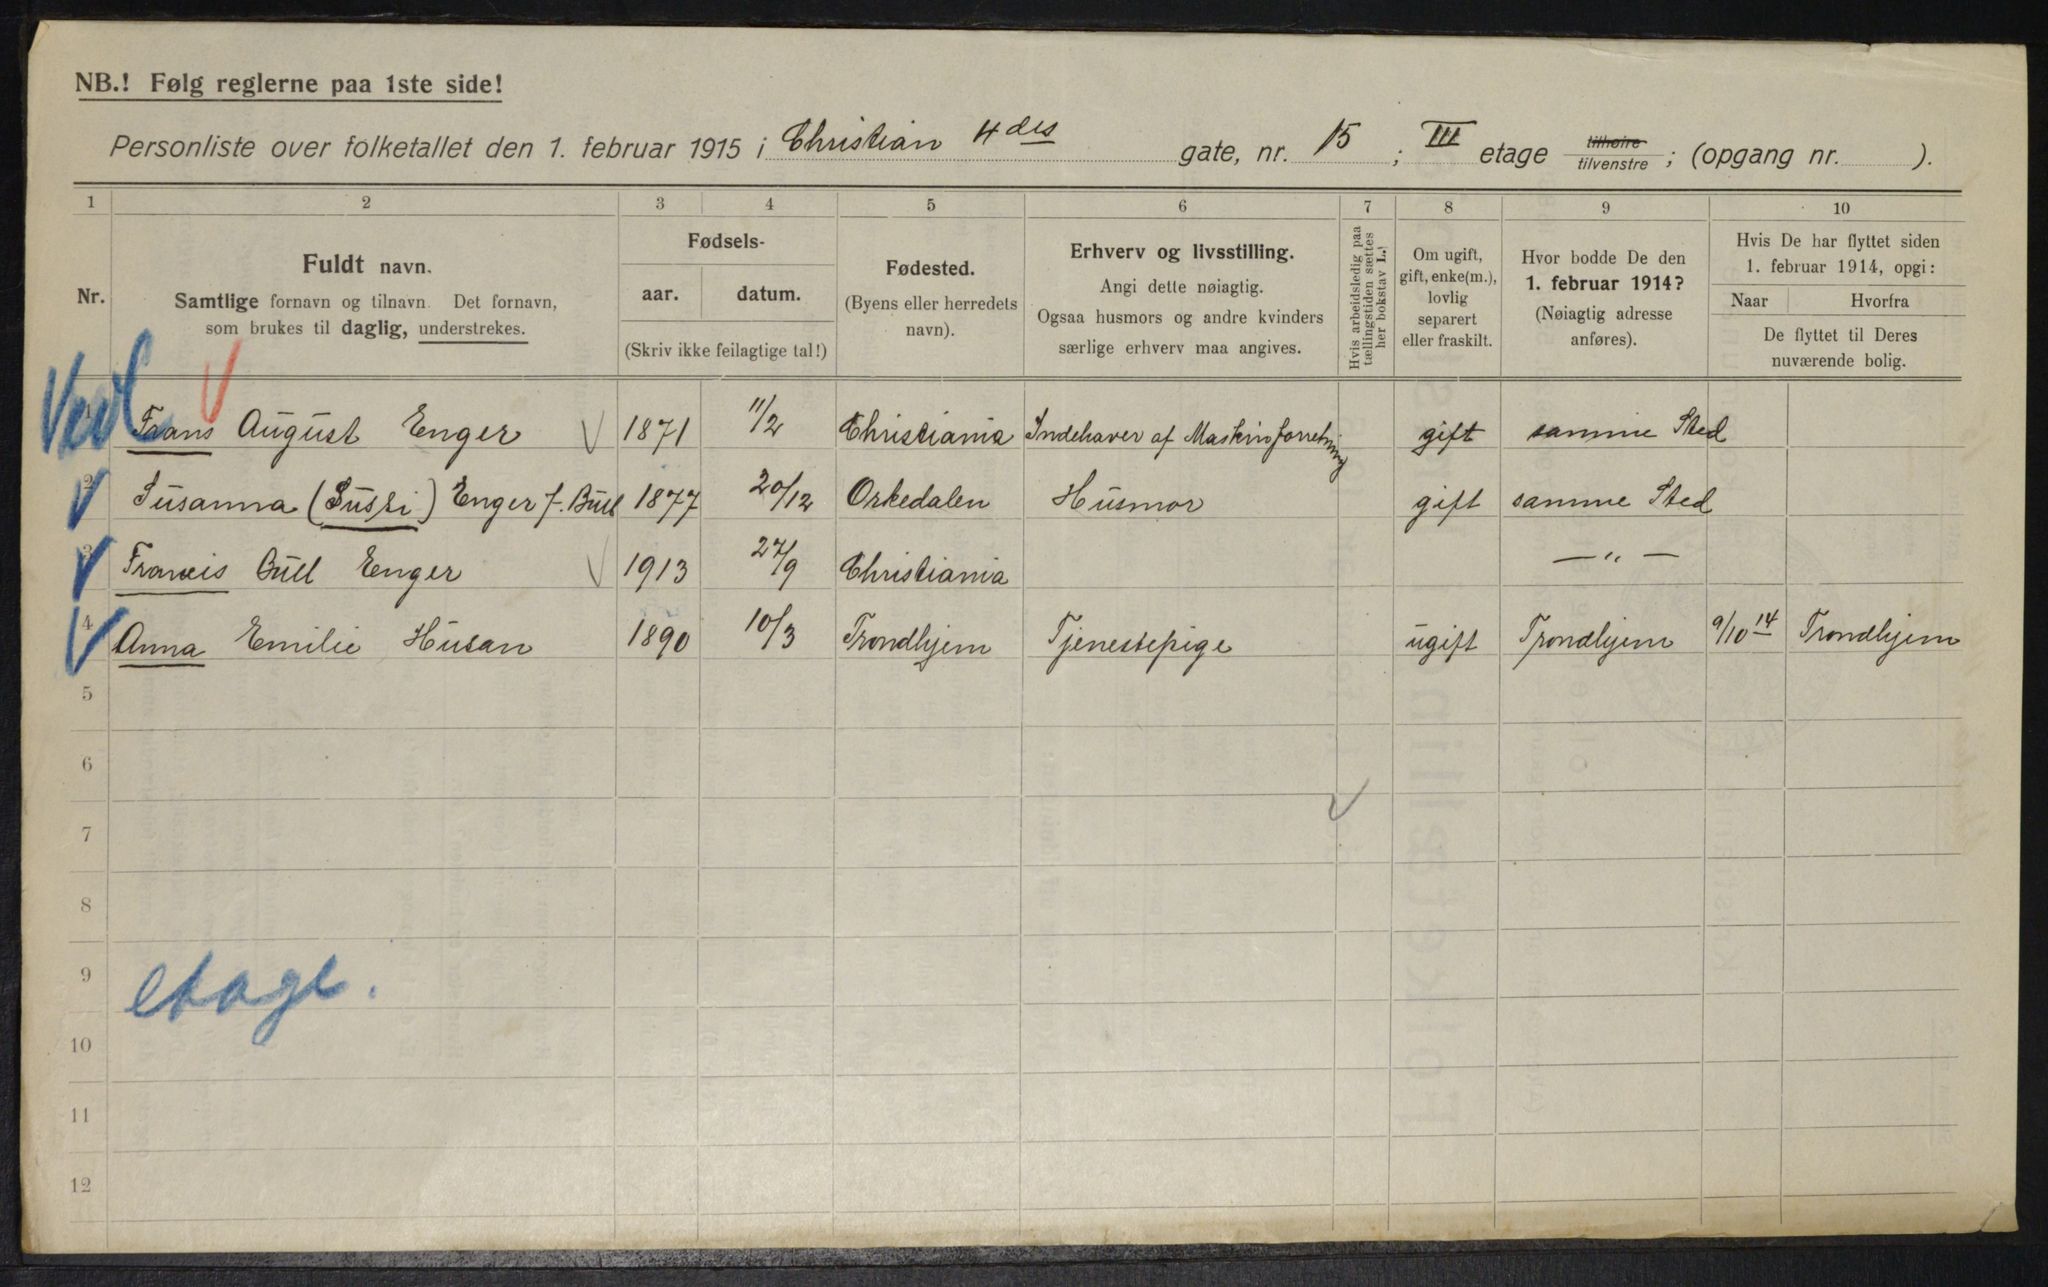 NB.! Følg reglerne paa 1ste side!
Personliste over folketallet den 1. februar 1915 i Christian 4des gate, nr. 15 ; III etage tilhøire tilvenstre ; (opgang nr. ).
1 2 3 4 5 6 7 8 9 10
Nr.
Fuldt navn.
Samtlige fornavn og tilnavn. Det fornavn,
som brukes til daglig, understrekes.
Fødsels-
aar. datum.
(Skriv ikke feilagtige tal!)
Fødested.
(Byens eller herredets
navn).
Erhverv og livsstilling.
Angi dette nøiagtig.
Ogsaa husmors og andre kvinders
særlige erhverv maa angives.
Hvis arbeidsledig paa
tællingstiden sættes
her bokstav L.!
Om ugift,
gift, enke(m.),
lovlig
separert
eller fraskilt.
Hvor bodde De den
1. februar 1914?
(Nøiagtig adresse
anføres).
Hvis De har flyttet siden
1. februar 1914, opgi:
Naar Hvorfra
De flyttet til Deres
nuværende bolig.
1 Frans August Enger 1871 11/2 Christiania Indehaver af Maskinforretning gift samme Sted
2 Susanna (Sussi) Enger f. Bull 1877 20/12 Orkedalen Husmor gift samme Sted
3 Francis Bull Enger 1913 27/9 Christiania — " —
4 Anna Emilie Husan 1890 10/3 Trondhjem Tjenestepige ugift Trondhjem 9/10 14 Trondhjem
5
6
7
8
9
etage.
10
11
12